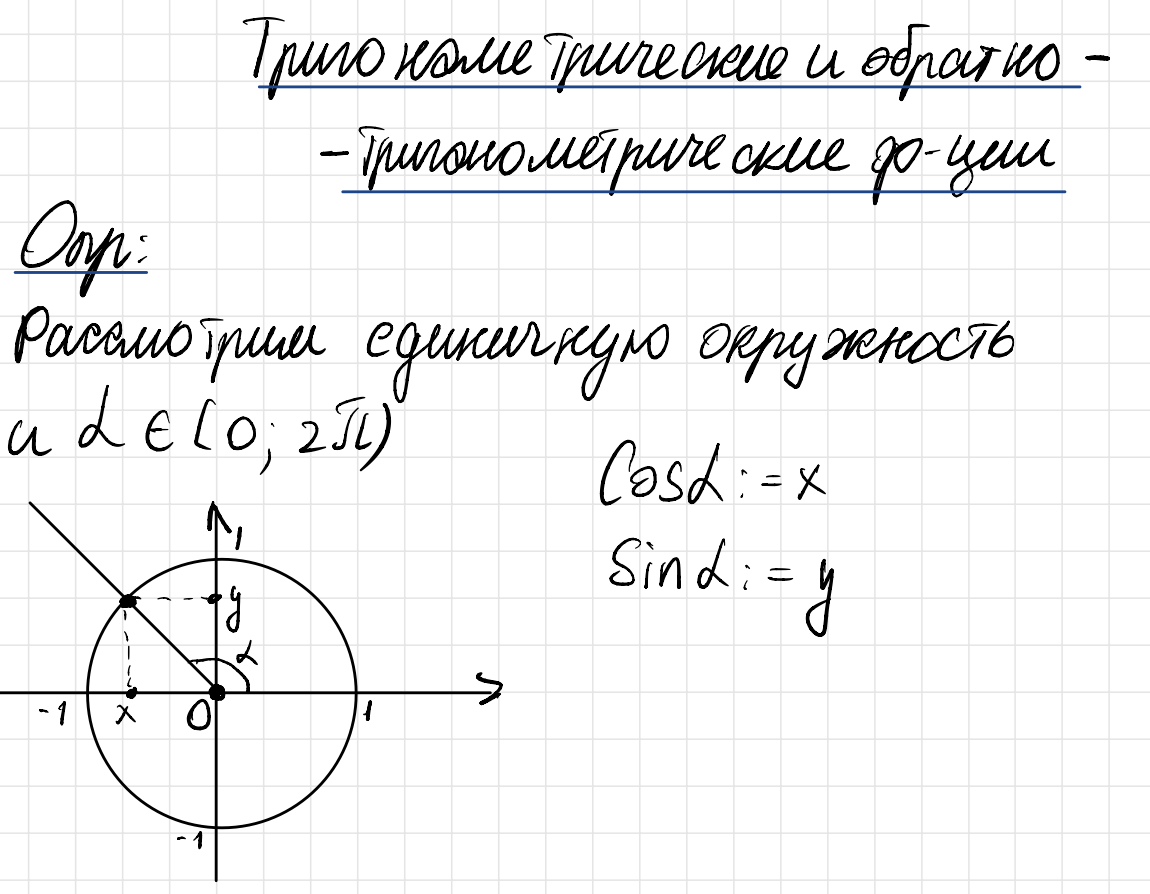 Тригонометрические и обратно -
- тригонометрические ф-ции
Опр:
Рассмотрим единичную окружность
и α ∈ [0; 2π)
Cosα := x
Sinα := y
1
y
α
-1
x
0
1
-1